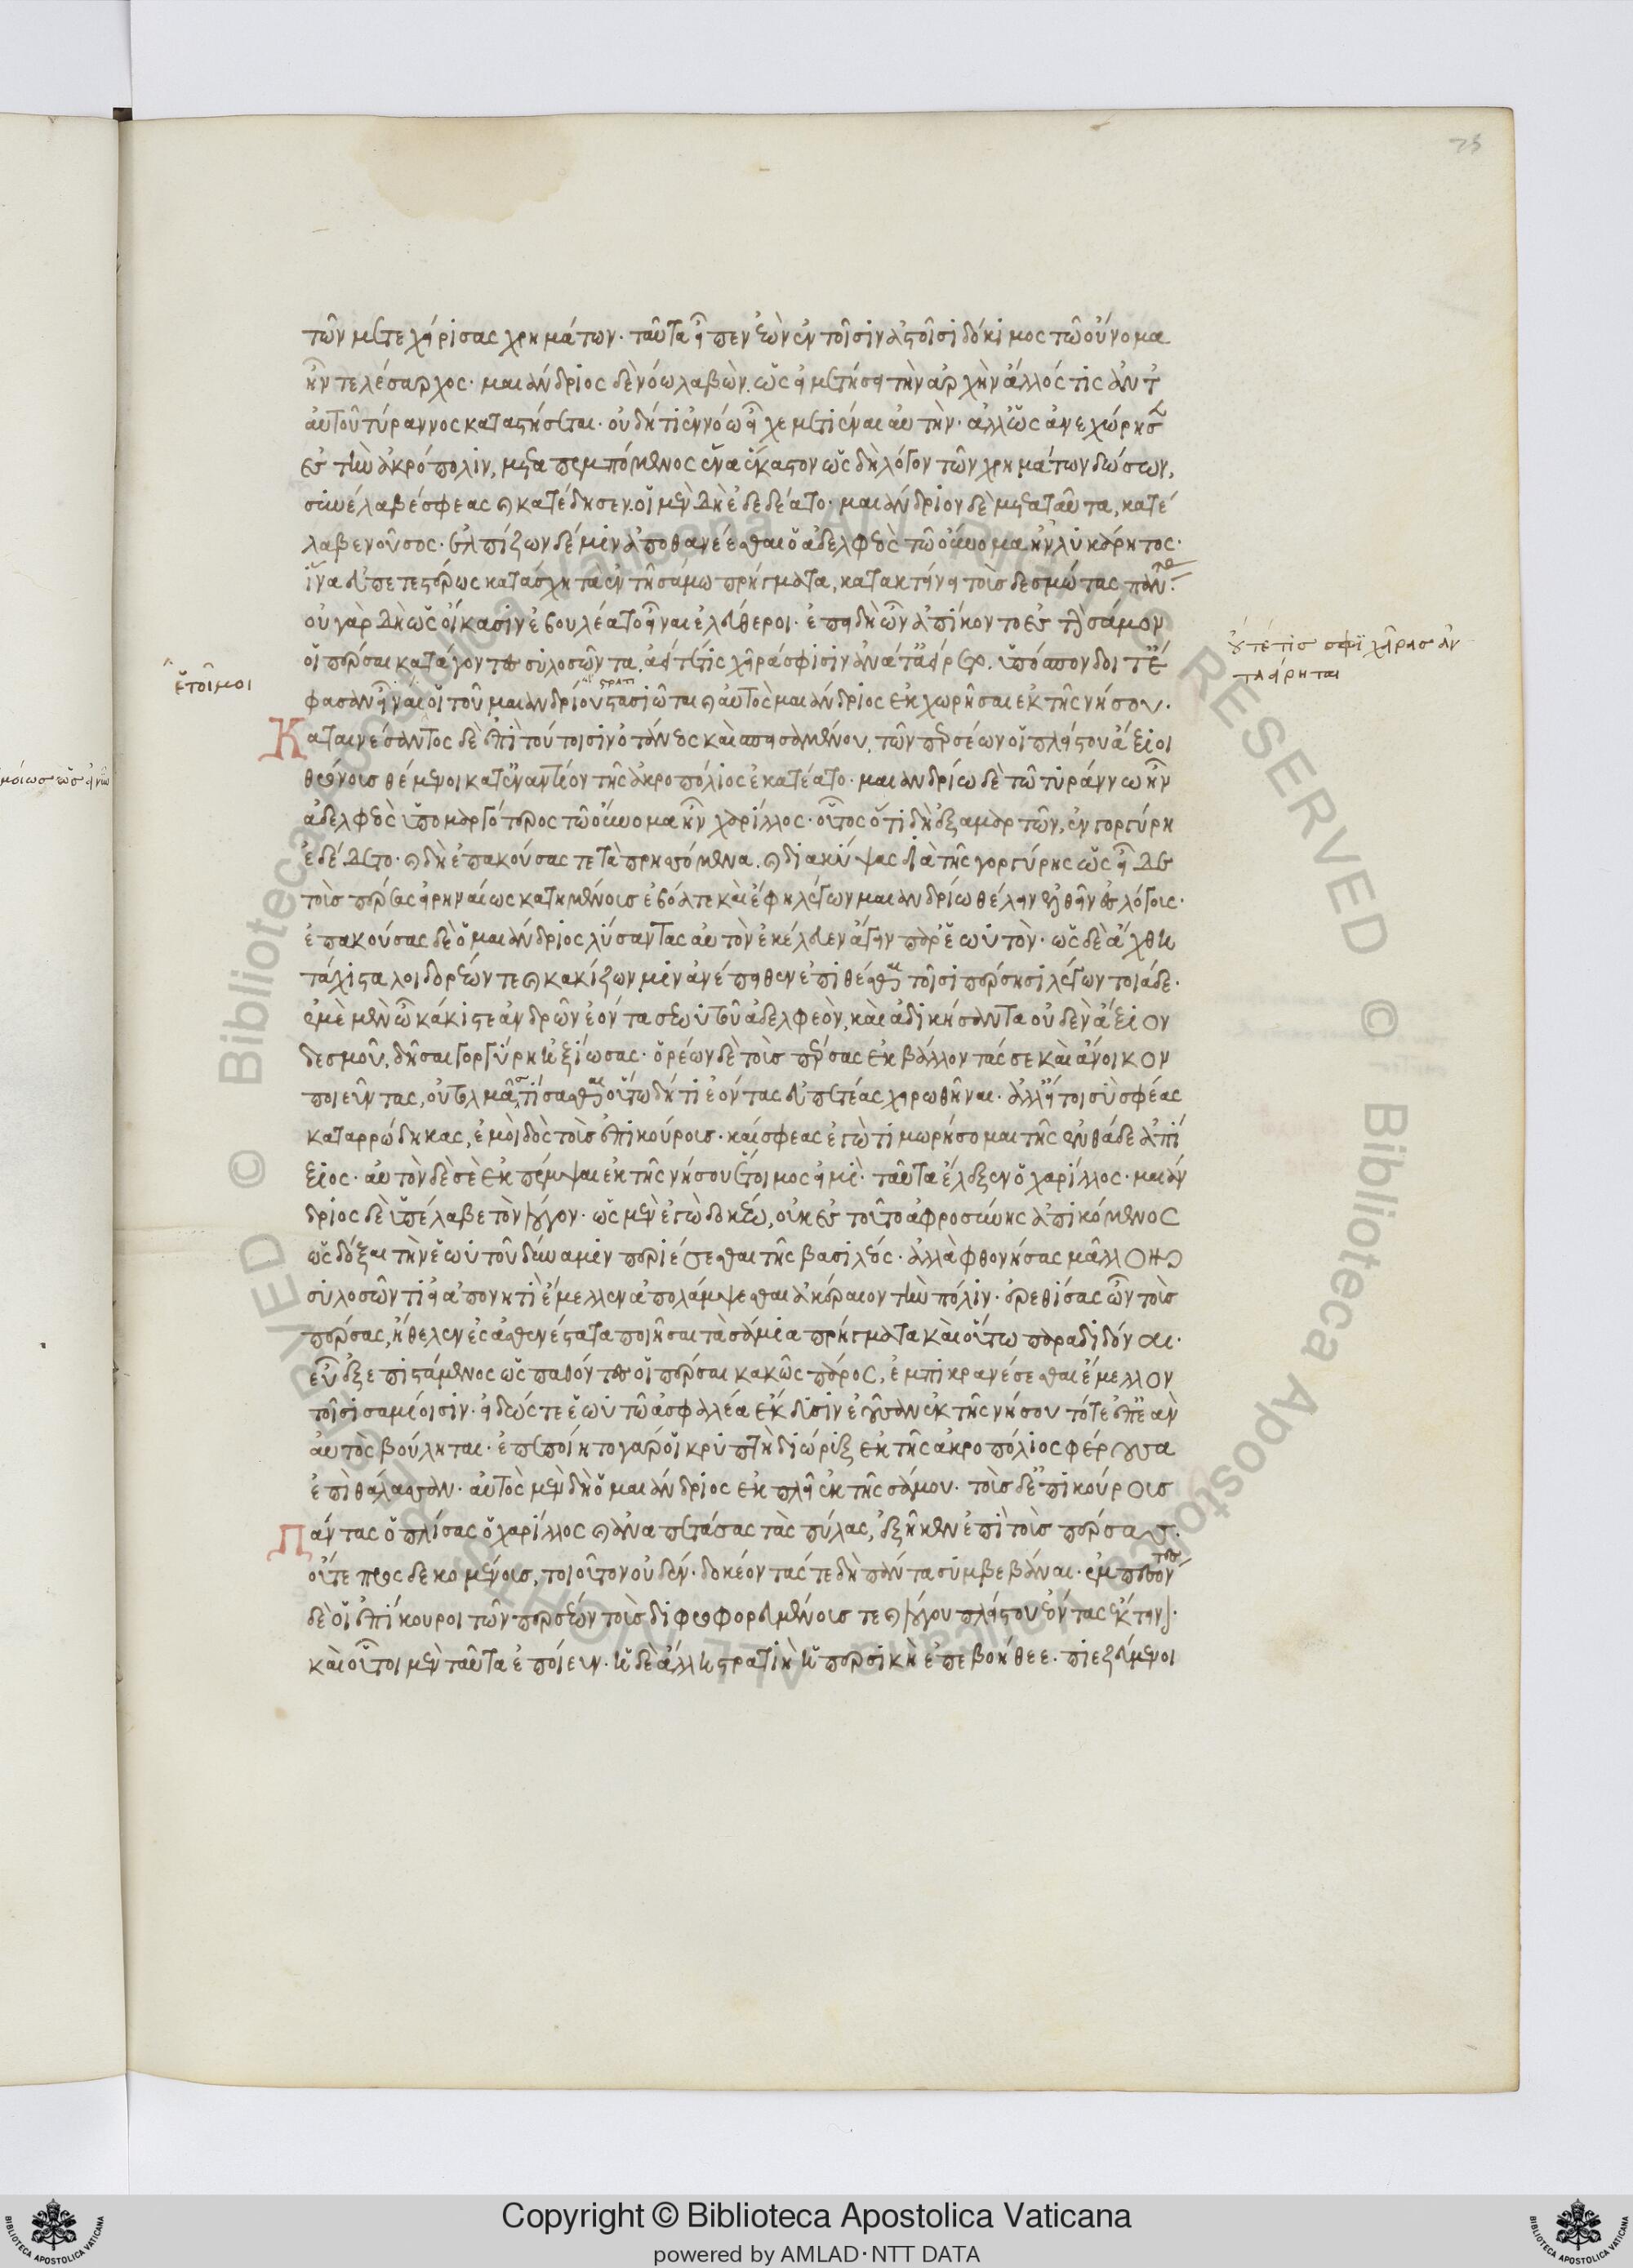 75
τῶν μετεχείρισας χρημάτων. ταῦτα εἶπεν ἐὼν ἐν τοῖσιν ἀστοῖσι δόκιμος τῶ οὔνομα
ἦν τελέσαρχος. μαιάνδριος δὲ νόω λαβὼν ὡς εἰ μετήσει τὴν ἀρχὴν ἄλλός τις ἀντ'
αὐτοῦ τύραννος καταστήσεται. οὐ δή τι ἐν νόω εἶχε μετιέναι αὐτὴν. ἀλλ' ὡς ἀνεχώρησε
ἐς τὴν ἀκρόπολιν, μεταπεμπόμενος ἕνα ἕκαστον ὡς δὴ λόγον τῶν χρημάτων δώσων,
συνέλαβέ σφεας καὶ κατέδησεν. οἱ μὲν δὴ ἐδεδέατο. μαιάνδριον δὲ μετὰ ταῦτα, κατέ
λαβε νοῦσος. ἐλπίζων δέ μιν ἀποθανέεσθαι ὁ ἀδελφεὸς τῶ οὔνομα ἦν λυκάρητος.
ἵνα εὐπετεστέρως κατάσχη τὰ ἐν τῆ σάμω πρήγματα, κατακτείνει τοὺς δεσμώτας πάντας.
οὐ γὰρ δὴ ὡς οἴκασιν ἐβουλέατο εἶναι ἐλεύθεροι. ἐπειδὴ ὦν ἀπίκοντο ἐς τὴν σάμον
οἱ πέρσαι κατάγοντες συλοσῶντα. οὔτέ τίς σφι χεῖρας ἀν
ταείρηται
ἕτοιμοι
φασαν εἶναι οἱ τοῦ μαιανδρίου στασιῶται καὶ αὐτὸς μαιάνδριος ἐκχωρῆσαι ἐκ τῆς νήσου.
στρατι
Καταινέσαντος δὲ ἐπὶ τούτοισιν ὀτάνεος καὶ σπεισαμένου, τῶν περσέων οἱ πλείστου ἄξιοι
θρόνους θέμενοι κατεναντίον τῆς ἀκροπόλιος ἐκατέατο. μαιανδρίω δὲ τῶ τυράννω ἦν
ἀδελφεὸς ὑπομαργότερος τῶ οὔνομα ἦν χαρίλλος. οὗτος ὅ τι δὴ ἐξαμαρτῶν, ἐν γοργύρη
ἐδέδετο. καὶ δὴ ἐπακούσας τε τὰ πρησσόμενα. καὶ διακύψας διὰ τῆς γοργύρης ὡς εἶδε
τοὺς πέρσας εἰρηναίως κατημένους ἐβόα τε καὶ ἔφη λέγων μαιανδρίω θέλειν ἐλθεῖν ἐς λόγους.
ἐπακούσας δὲ ὁ μαιάνδριος λύσαντας αὐτὸν ἐκέλευεν ἄγειν παρ' ἑωυτὸν. ὡς δὲ ἄχθη
τάχιστα λοιδορέων τε καὶ κακίζων μιν ἀνέπειθεν ἐπιθέσθαι τοῖσι πέρσησι λέγων τοιάδε.
ἐμὲ μὲν ὦ κάκιστε ἀνδρῶν ἐόντα σεωυτοῦ ἀδελφεὸν, καὶ ἀδικήσαντα οὐδὲν ἄξιον
δεσμοῦ, δήσας γοργύρη ἠξίωσας. ὁρέων δὲ τοὺς πέρσας ἐκβάλλοντάς σε καὶ ἄνοικον
ποιεῦντας, οὐ τολμᾶς τίσασθαι οὕτω δή τι ἐόντας εὐπετέας χειρωθῆναι. ἀλλ' εἴ τοι σὺ σφέας
καταρρώδηκας, ἐμοὶ δὸς τοὺς ἐπικούρους. καί σφεας ἐγὼ τιμωρήσομαι τῆς ἐνθάδε ἀπί
ξιος. αὐτὸν δὲ σὲ ἐκπέμψαι ἐκ τῆς νήσου ἕτοιμος εἰμὶ. ταῦτα ἔλεξεν ὁ χαρίλλος. μαιάν
δριος δὲ ὑπέλαβε τὸν λόγον. ὡς μὲν ἐγὼ δοκέω, οὐκ ἐς τοῦτο ἀφροσύνης ἀπικόμενος
ὡς δόξαι τὴν ἑωυτοῦ δύναμιν περιέσεσθαι τῆς βασιλέος. ἀλλὰ φθονήσας μᾶλλον
συλοσῶντι εἰ ἀπονητὶ ἔμελλεν ἀπολάμψεσθαι ἀκέραιον τὴν πόλιν. ἐρεθίσας ὦν τοὺς
πέρσας, ἤθελεν ἐς ἀσθενέστατα ποιῆσαι τὰ σάμια πρήγματα καὶ οὕτω παραδιδόναι.
εὖ ἐξεπιστάμενος ὡς παθόντες οἱ πέρσαι κακῶς, ἐμπικρανέεσθαι ἔμελλον
τοῖσι σαμίοισιν. εἰδώς τε ἑωυτῶ ἀσφαλέα ἔκδυσιν ἐοῦσαν ἐκ τῆς νήσου τότε ἐπεὰν
αὐτὸς βούληται. ἐπεποίητο γὰρ οἱ κρυπτὴ διώρυξ ἐκ τῆς ἀκροπόλιος φέρουσα
ἐπὶ θάλασσαν. αὐτὸς μὲν δὴ ὁ μαιάνδριος ἐκπλεῖ ἐκ τῆς σάμου. τοὺς δ' ἐπικούρους
Πάντας ὁπλίσας ὁ χαρίλλος καὶ ἀναπετάσας τὰς πύλας, ἐξῆκεν ἐπὶ τοὺς πέρσας.
οὔτε προσδεκομένους, τοιοῦτον οὐδὲν. δοκέοντάς τε δὴ πάντα συμβεβάναι. ἐμπεσόντες
δὲ οἱ ἐπίκουροι τῶν περσέων τοὺς διφροφορευμένους τε καὶ λόγου πλείστου ἐόντας ἔκτεινον.
καὶ οὗτοι μὲν ταῦτα ἐποίευν. ἡ δὲ ἄλλη στρατιὴ ἡ περσικὴ ἐπεβοήθεε. πιεζεύμενοι
Copyright © Biblioteca Apostolica Vaticana
powered by AMLAD·NTT DATA